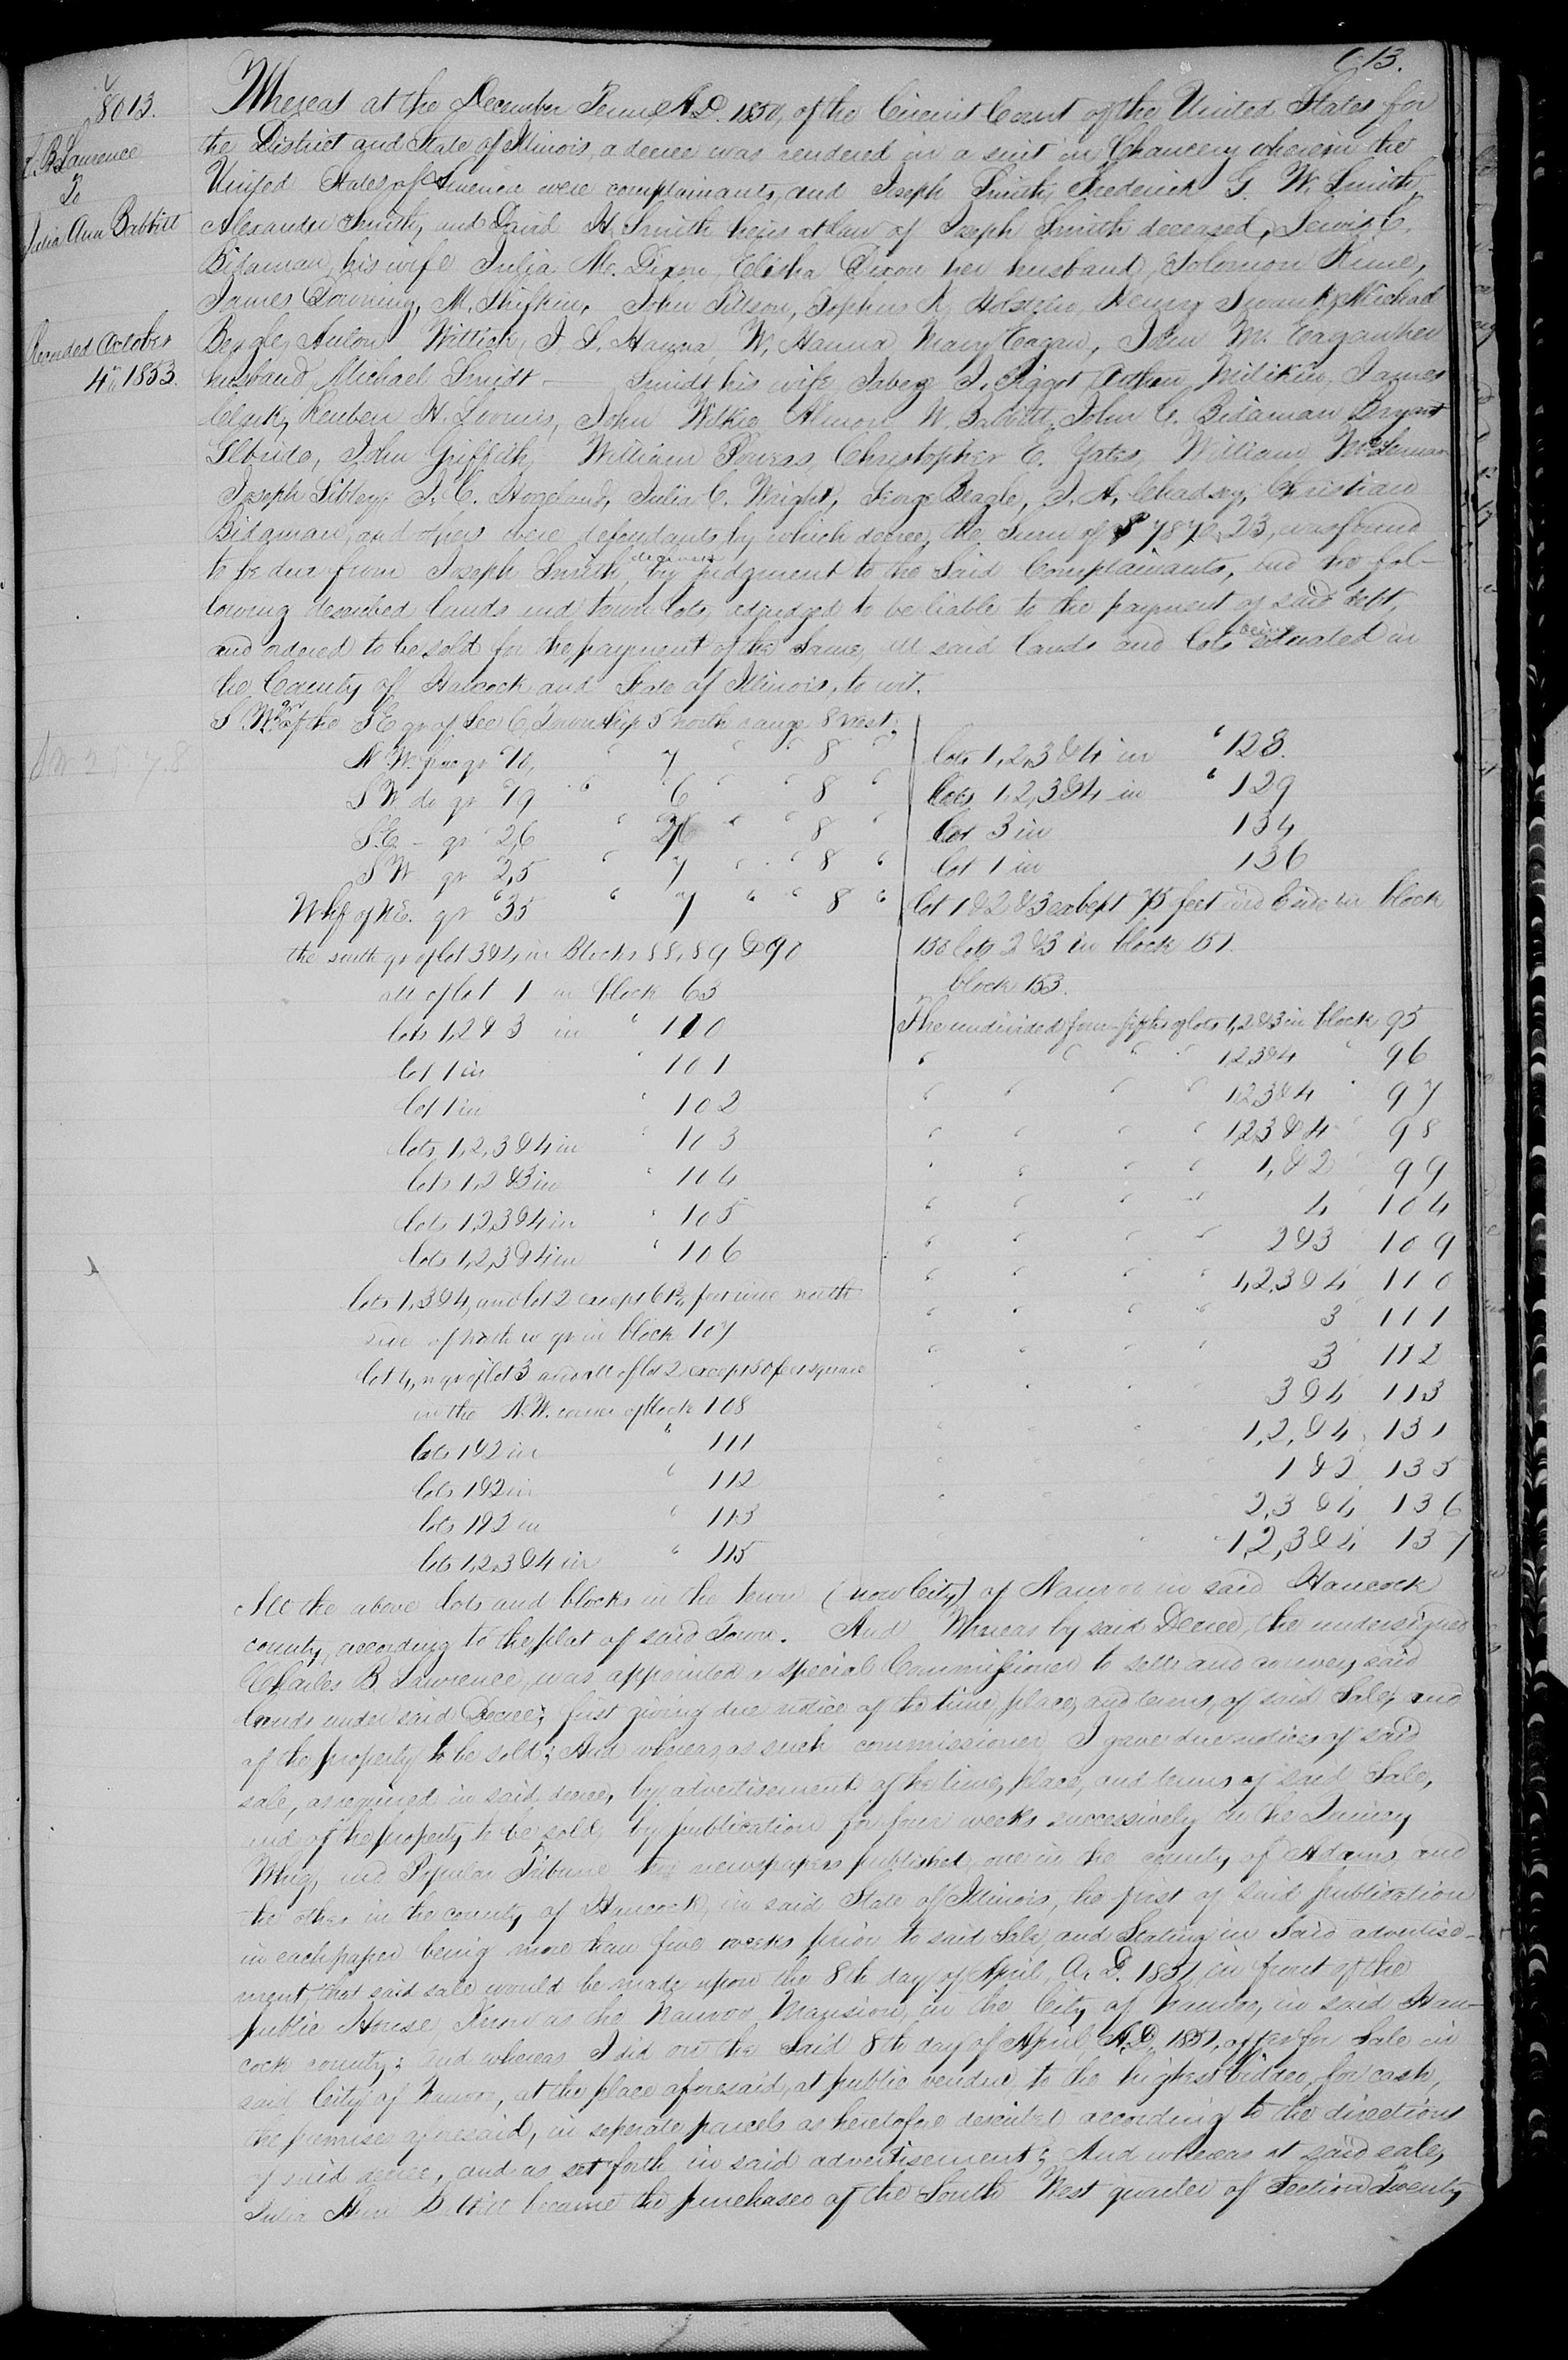 613.
8013.
C. B. Lawrence
To
Julia Ann Babbitt
Recorded October
4th, 1853.
Whereas at the December Term A.D. 1850, of the Circuit Court of the United States for
the District and State of Illinois, a decree was rendered in a suit in Chancery wherein the
United States of America were complainants, and Joseph Smith, Frederick G. W. Smith,
Alexander Smith, and David H. Smith heirs at law of Joseph Smith deceased, Lewis C.
Bidaman, his wife Julia M. Dixon, Elisha Dixon her husband, Solomon
James Downing, M. John Henry Swank, Michael
Anton Wittich, J. S. Hanna, W. Hanna Mary Eagan, John M. Eagan her
husband, Michael Smidt — Smidt his wife, Jabez J. Piggot, Arthur Milikin, James
Clark, Reuben H. Loomis, John Wilkie Almon W. Babbitt, John C. Bidaman Bryant
John Griffith, William Powers, Christopher E. Yates, William
Joseph Sibley, J. C. Hogeland, Julia C. Wright, George Beagle, J. A. Chadsey, Christian
Bidaman, and others were defendants, by which decree, the sum of $7870,23, was found
to be due from Joseph Smith, deceased by judgment to the said Complainants, and the fol-
lowing described lands and town lots, adjudged to be liable to the payment of said debt,
and ordered to be sold for the payment of the same, all said lands and lots being situated in
the County of Hancock and State of Illinois, to wit.
S. W. qr of the S E qr of Sec 6, Township 5 north range 8 west,
N. W. frac qr " 10, " 7 " " 8 "
S W do qr " 19 " 6 " " 8 "
S. E - qr " 26 " " " 8 "
S W qr 25 " 7 " " 8 "
W hf of N E. qr " 35 " 7 " " 8 "
the south qr of lot 3 & 4 in Blocks 88, 89 & 90
all of lot 1 in block 63
lots 1, 2 & 3 in " 110
lot 1 in " 101
lot 1 in " 102
lots 1, 2, 3 & 4 in " 103
lots 1, 2 & 3 in " 104
lots 1, 2, 3 & 4 in " 105
lots 1, 2, 3 & 4 in " 106
lots 1, 3 & 4, and lot 2 except north
side of in block 107
lot 4, n qr of lot 3 and all of lot 2 except 50 feet square
in the N. W. corner of block 108
lots 1 & 2 in " 111
lots 1 & 2 in " 112
lots 1 & 2 in " 113
lots 1, 2, 3 & 4 in " 115
lots 1, 2, 3 & 4 in " 128.
lots 1, 2, 3 & 4 in " 129
lot 3 in 134
lot 1 in 136
lot 1 & 2 & 3 except 75 feet in block
150 lots 2 & 3 in block 151.
block 153.
The undivided four-fifths of lots 1, 2 & 3 in block 95
" " " " 1 2 3 & 4 " 96
" " " " 1 2 3 & 4 " 97
" " " " 1 2 3 & 4 " 98
" " " " 1, & 2 " 99
" " " " 4 104
" " " " 2 & 3 109
" " " " 1, 2, 3 & 4 110
" " " " 3 111
" " " " 3 112
" " " 3 & 4 113
" " " 1, 2, & 4 131
" " " 1 & 2 135
" " " 2, 3 & 4 136
" " 1, 2, 3 & 4 137
All the above lots and blocks in the town (now City) of Nauvoo in said Hancock
county, according to the plat of said Town. And Whereas by said Decree, the undersigned
Charles B. Lawrence, was appointed a special Commissioner to sell and convey said
lands under said Decree; first giving due notice of the time, place, and terms, of said Sale, and
of the property to be sold; And whereas, as such commissioner I gave due notice of said
sale, as required in said decree, by advertisement of the time, place, and terms of said Sale,
and of the property to be sold, by publication for four weeks successively in the Quincy
Whig, and Popular Tribune two newspapers published, one in the county of Adams and
the other in the county of Hancock, in said State of Illinois, the first of said publication
in each paper being more than five weeks prior to said Sale, and Stating in said advertise-
ment, that said sale would be made upon the 8th day of April, A. D. 1851, in front of the
public House Known as the Nauvoo Mansion, in the City of Nauvoo, in said Han-
cock county; and whereas I did on the said 8th day of April, A. D. 1851, offer for Sale in
said City of Nauvoo, at the place aforesaid, at public vendue, to the highest bidder, for cash,
the premises aforesaid, in seperate parcels as heretofore described according to the directions
of said decree, and as set forth in said advertisement; And whereas at said sale,
Julia Ann Babbitt became the purchaser of the South West quarter of Section Twenty